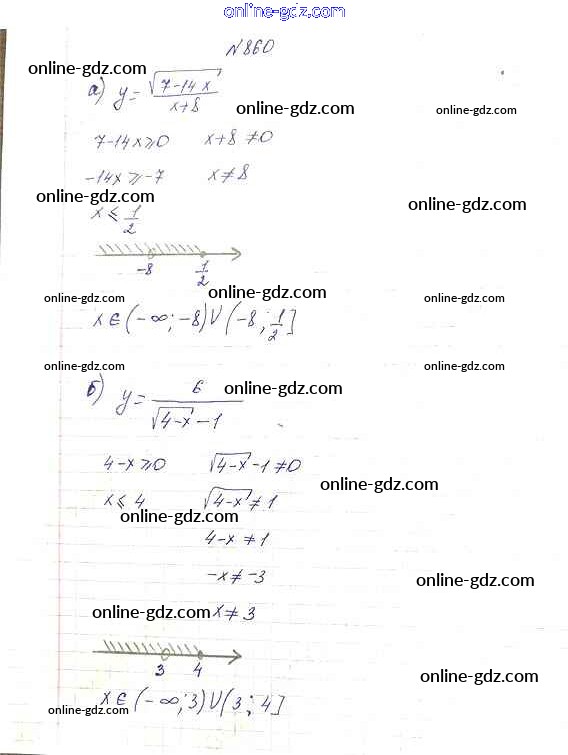 online-gdz.com
N860
online-gdz.com
а) y = √(7-14x) / (x+8)
online-gdz.com online-gdz.com
7-14x ≥ 0 x+8 ≠ 0
-14x ≥ -7 x ≠ 8
online-gdz.com online-gdz.com
x ≤ 1/2
-8 1/2
online-gdz.com
online-gdz.com online-gdz.com
x ∈ (-∞; -8) U (-8; 1/2]
online-gdz.com online-gdz.com
б) y = 6 / (√(4-x) - 1)
online-gdz.com
4-x ≥ 0 √(4-x) - 1 ≠ 0
online-gdz.com
x ≤ 4 √(4-x) ≠ 1
online-gdz.com
4-x ≠ 1
-x ≠ -3
online-gdz.com
online-gdz.com x ≠ 3
3 4
online-gdz.com
x ∈ (-∞; 3) U (3; 4]
online-gdz.com
online-gdz.com